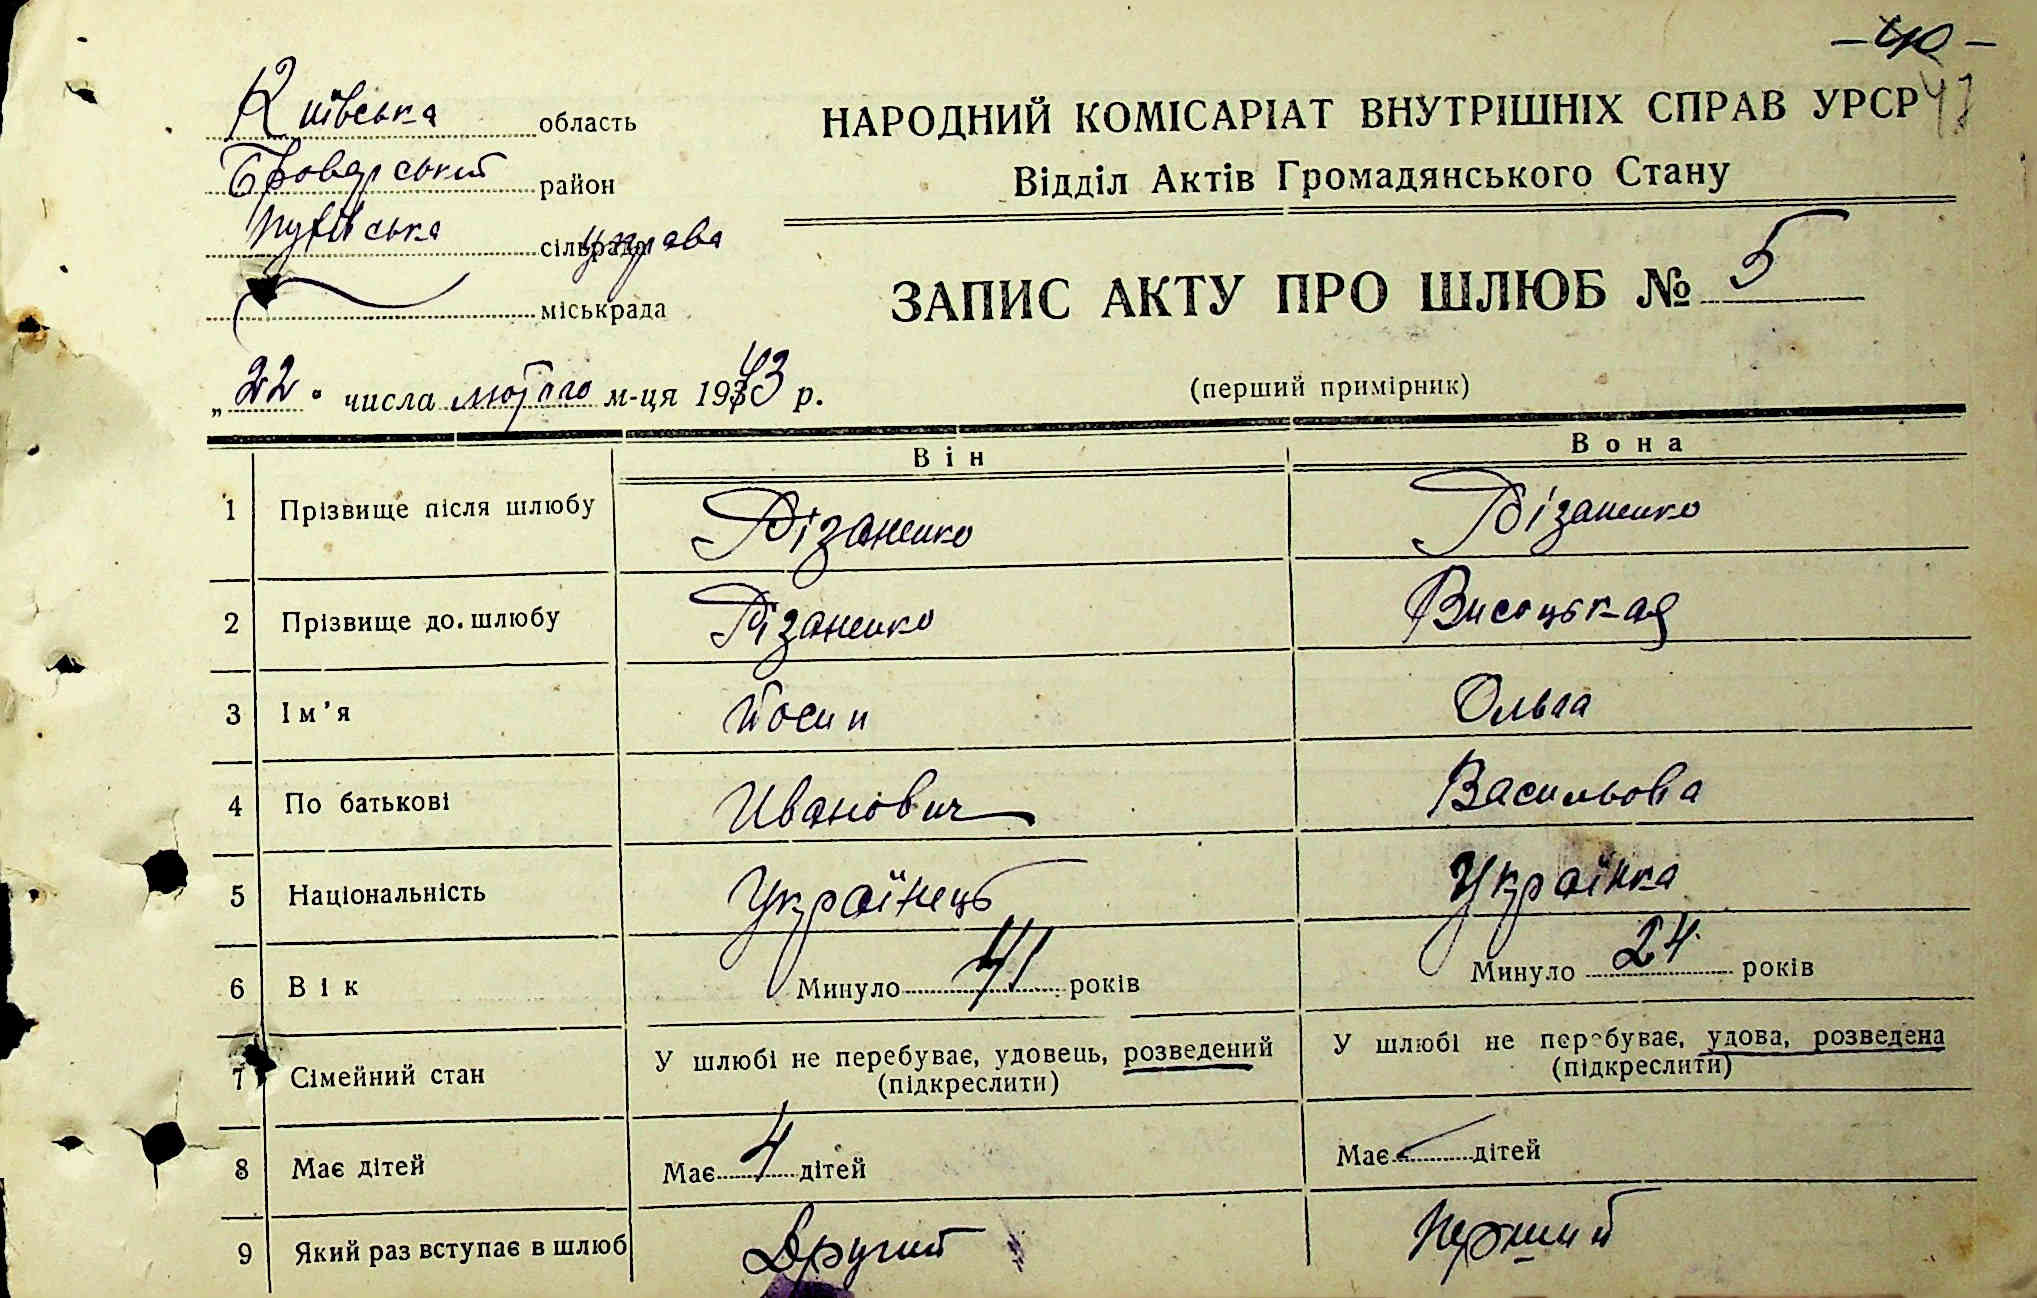 - 40 -
47
Київська область
Броварський район
Пухівська сільрада управа
міськрада
НАРОДНИЙ КОМІСАРІАТ ВНУТРІШНІХ СПРАВ УРСР
Відділ Актів Громадянського Стану
ЗАПИС АКТУ ПРО ШЛЮБ № 5
„22" числа лютого м-ця 1943 р.
(перший примірник)
Він Вона
1 Прізвище після шлюбу Різаненко Різаненко
2 Прізвище до шлюбу Різаненко Висоцькая
3 Ім'я Йосип Ольга
4 По батькові Иванович Васильовна
5 Національність Українець Українка
6 Вік Минуло 41 років Минуло 24 років
7 Сімейний стан У шлюбі не перебуває, удовець, розведений (підкреслити) У шлюбі не перебуває, удова, розведена (підкреслити)
8 Має дітей Має 4 дітей Має — дітей
9 Який раз вступає в шлюб Другий Перший